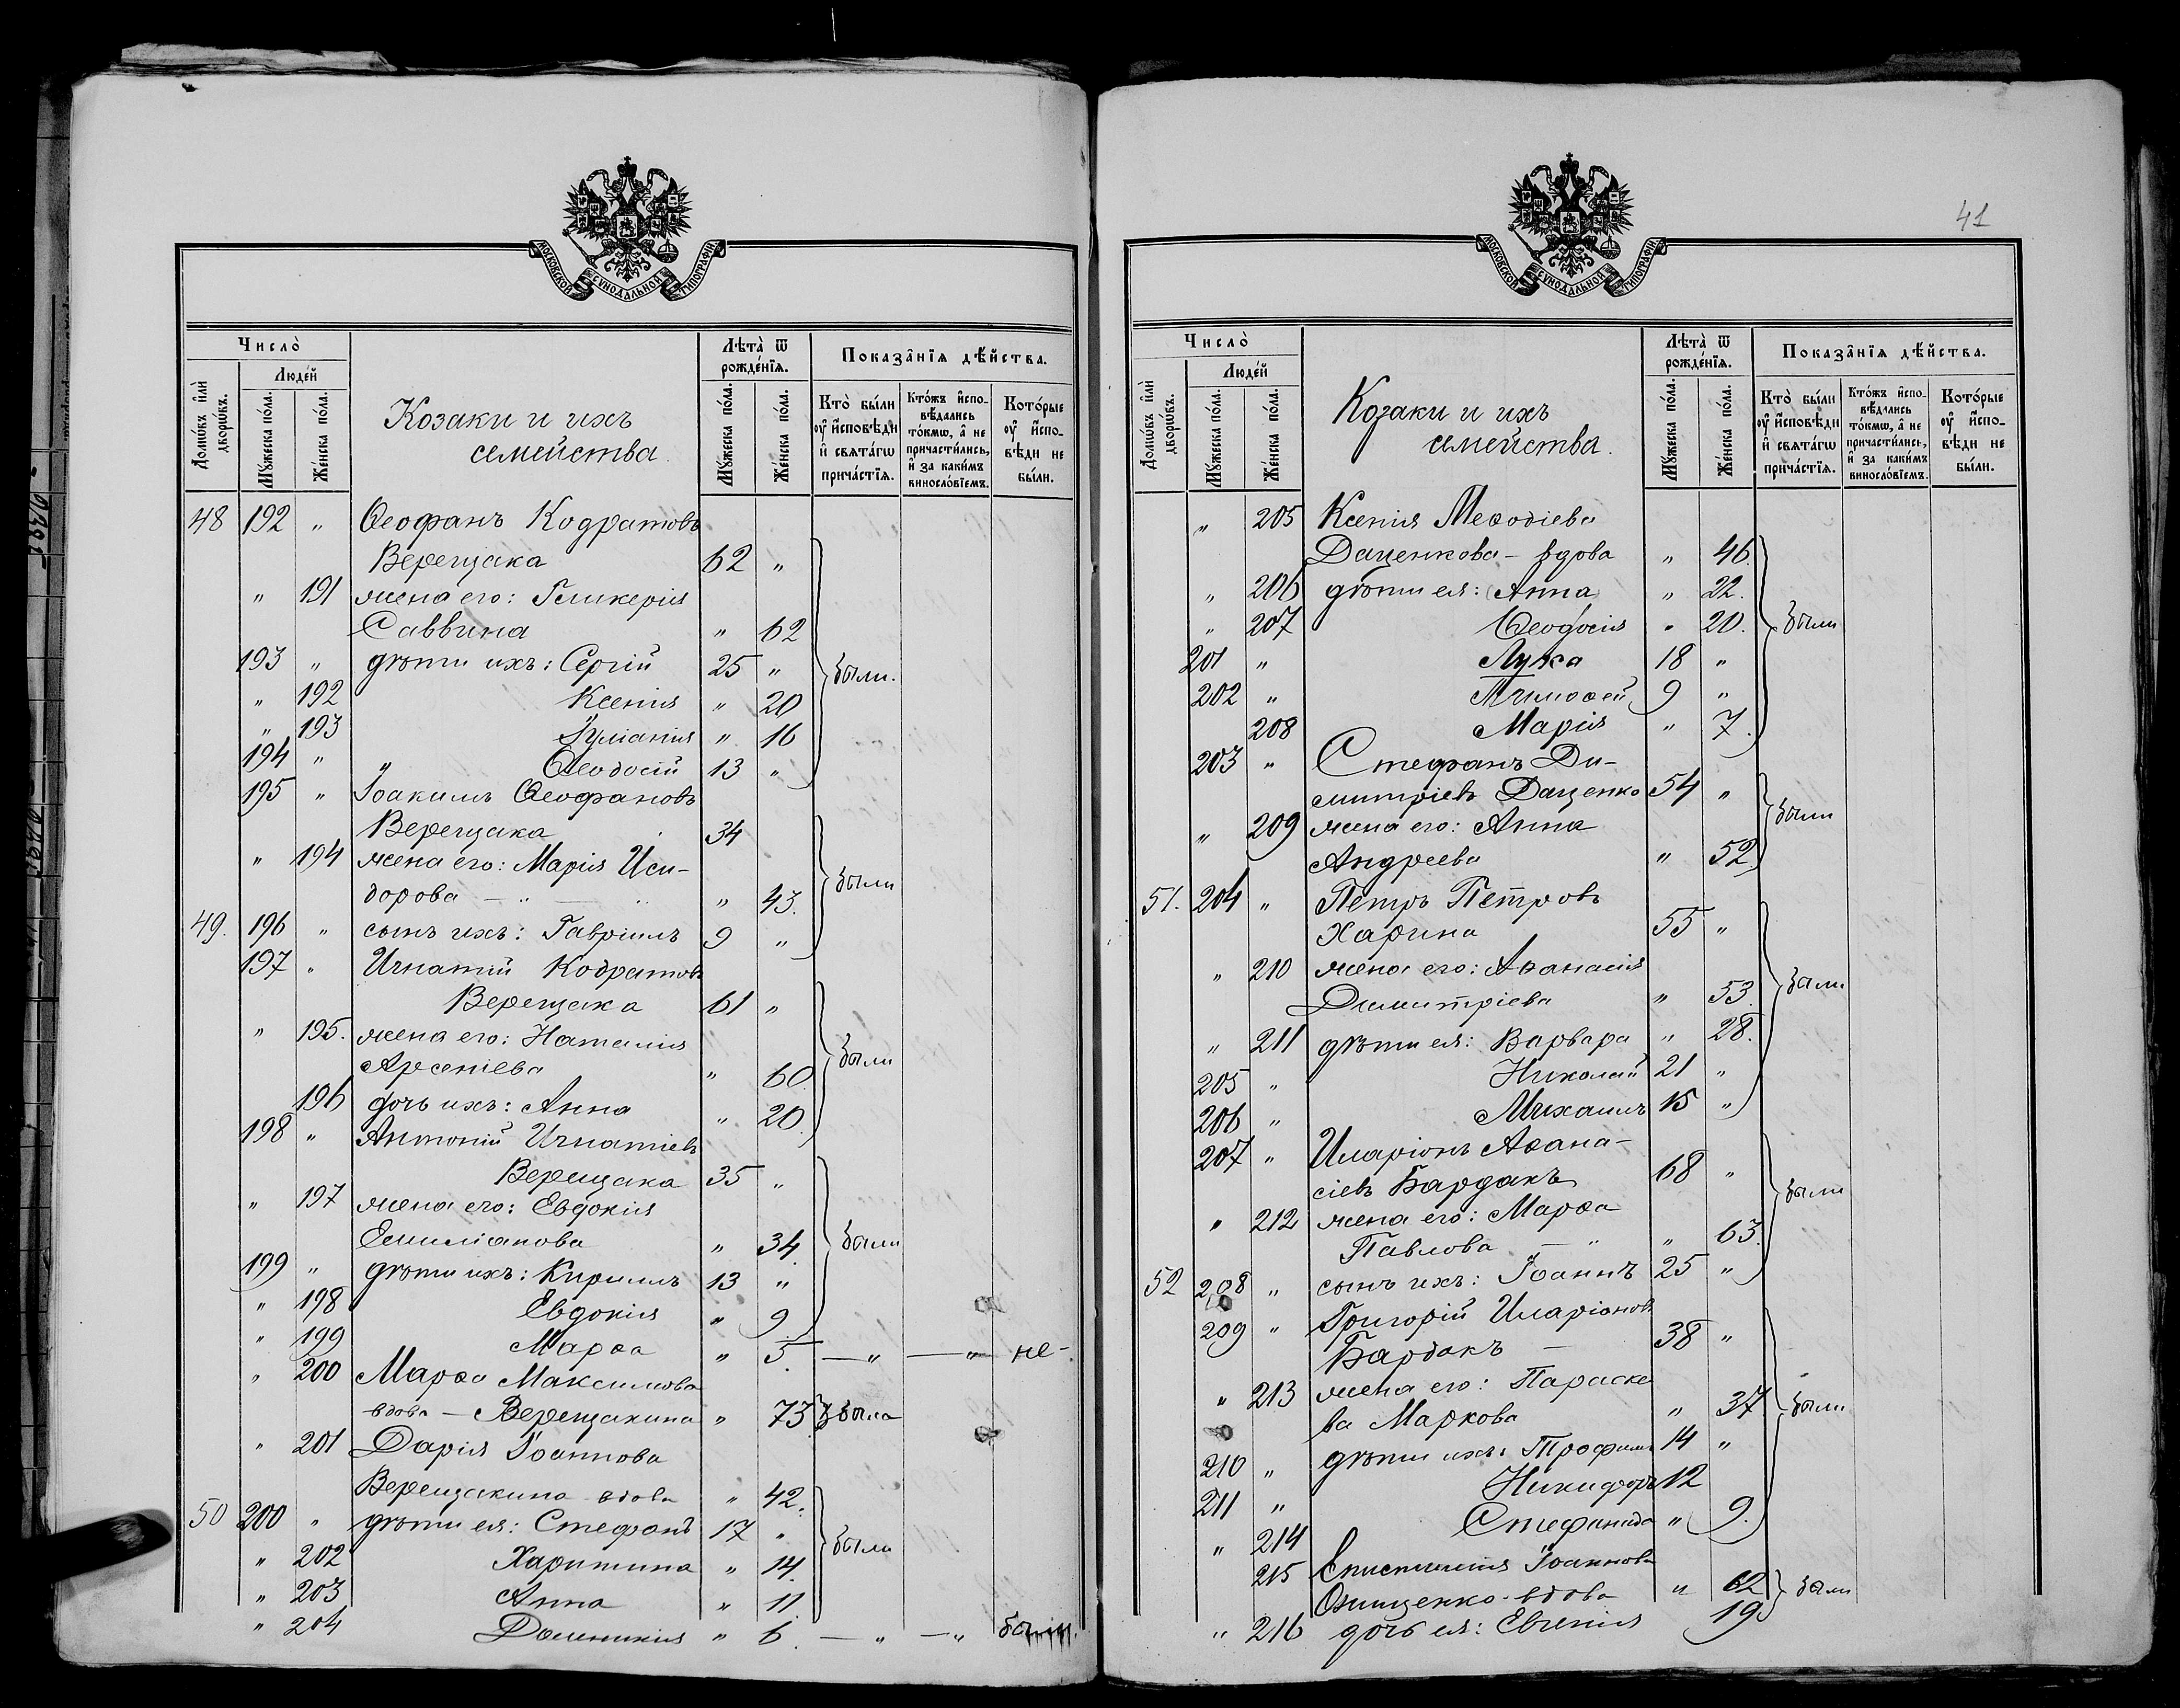 МОСКОВСКОЙ СѴНОДАЛЬНОЙ ТИПОГРАФІИ
Число̀
Домѡ́въ и҆лѝ дворѡ́въ.
Люде́й
Мꙋ́жеска по́ла.
Же́нска по́ла.
Козаки и ихъ
семейства.
Лѣта̀ ѿ рожде́нїѧ.
Мꙋ́жеска по́ла.
Же́нска по́ла.
Показа̑нїѧ дѣ́йства.
Кто̀ бы́ли ᲂу҆ и҆сповѣ́ди и҆ свѧта́гѡ прича́стїѧ.
Кто́жъ и҆сповѣ́дались то́кмѡ, а҆ не причасти́лись, и҆ за каки́мъ виносло́вїемъ.
Кото́рые ᲂу҆ и҆сповѣ́ди не бы́ли.
48 192 " Ѳеофанъ Кодратовъ
Верещака 62 "
" 191 жена его: Гликерія
Саввина " 62
193 " дѣти ихъ: Сергій 25 " были.
" 192 Ксенія " 20
" 193 Іуліанія " 16
194 " " Ѳеодосій 13 "
195 " Іоакимъ Ѳеофановъ
Верещака 34
" 194 жена его: Марія Иси-
дорова — " — " " 43. были
49. 196 " сынъ ихъ: Гавріилъ 9 "
197 " Игнатій Кодратовъ
Верещака 61 "
" 195. жена его: Наталія
Арсеніева " 60 были
196 дочь ихъ: Анна " 20.
198 " Антоній Игнатіевъ
Верещака 35 "
" 197 жена его: Евдокія
Емиліанова " 34. были
199 " дѣти ихъ: Кириллъ 13 "
" 198 Евдокія " 9
" 199 Марѳа " 5. — " — " не-
" 200 Марѳа Максимова
вдова — Верещакина " 73. была
" 201 Дарія Іоаннова
Верещакина - вдова " 42.
50 200 " дѣти ея: Стефанъ 17 " были
" 202 Харитина " 14.
" 203 Анна " 11
" 204 Доминикія " 6. — " — " были.
41
МОСКОВСКОЙ СѴНОДАЛЬНОЙ ТИПОГРАФІИ
Число̀
Домѡ́въ и҆лѝ дворѡ́въ.
Люде́й
Мꙋ́жеска по́ла.
Же́нска по́ла.
Козаки и ихъ
семейства.
Лѣта̀ ѿ рожде́нїѧ.
Мꙋ́жеска по́ла.
Же́нска по́ла.
Показа̑нїѧ дѣ́йства.
Кто̀ бы́ли ᲂу҆ и҆сповѣ́ди и҆ свѧта́гѡ прича́стїѧ.
Кто́жъ и҆сповѣ́дались то́кмѡ, а҆ не причасти́лись, и҆ за каки́мъ виносло́вїемъ.
Кото́рые ᲂу҆ и҆сповѣ́ди не бы́ли.
" 205 Ксенія Меѳодіева
Даценкова - вдова " 46.
" 206 дѣти ея: Анна " 22.
" 207 Ѳеодосія " 20. были
201 " Лука 18 "
202 " Тимоѳей 9 "
208 Марія " 7.
203 " Стефанъ Ди-
митріевъ Даценко 54 "
" 209 жена его: Анна были
Андреева " 52.
51. 204 " Петръ Петровъ
Харина 55 "
" 210 жена его: Аѳанасія
Димитріева " 53. были
" 211 дѣти ея: Варвара " 28.
205 " Николай 21 "
206 " Михаилъ 15 "
207 " Иларіонъ Аѳана-
сіевъ Бардакъ 68 " были
" 212 жена его: Марѳа
Павлова — " " 63.
52 208 " сынъ ихъ: Іоаннъ 25 "
209 " Григорій Иларіоновъ
Бардакъ — 38 "
" 213 жена его: Параске
ва Маркова " 37 были
210 " дѣти ихъ: Трофимъ 14 "
211 " Никифоръ 12
" 214 Стефанида " 9.
215 Епистимія Іоаннова
Онищенко - вдова " 62 были
" 216 дочь ея: Евгенія 19.